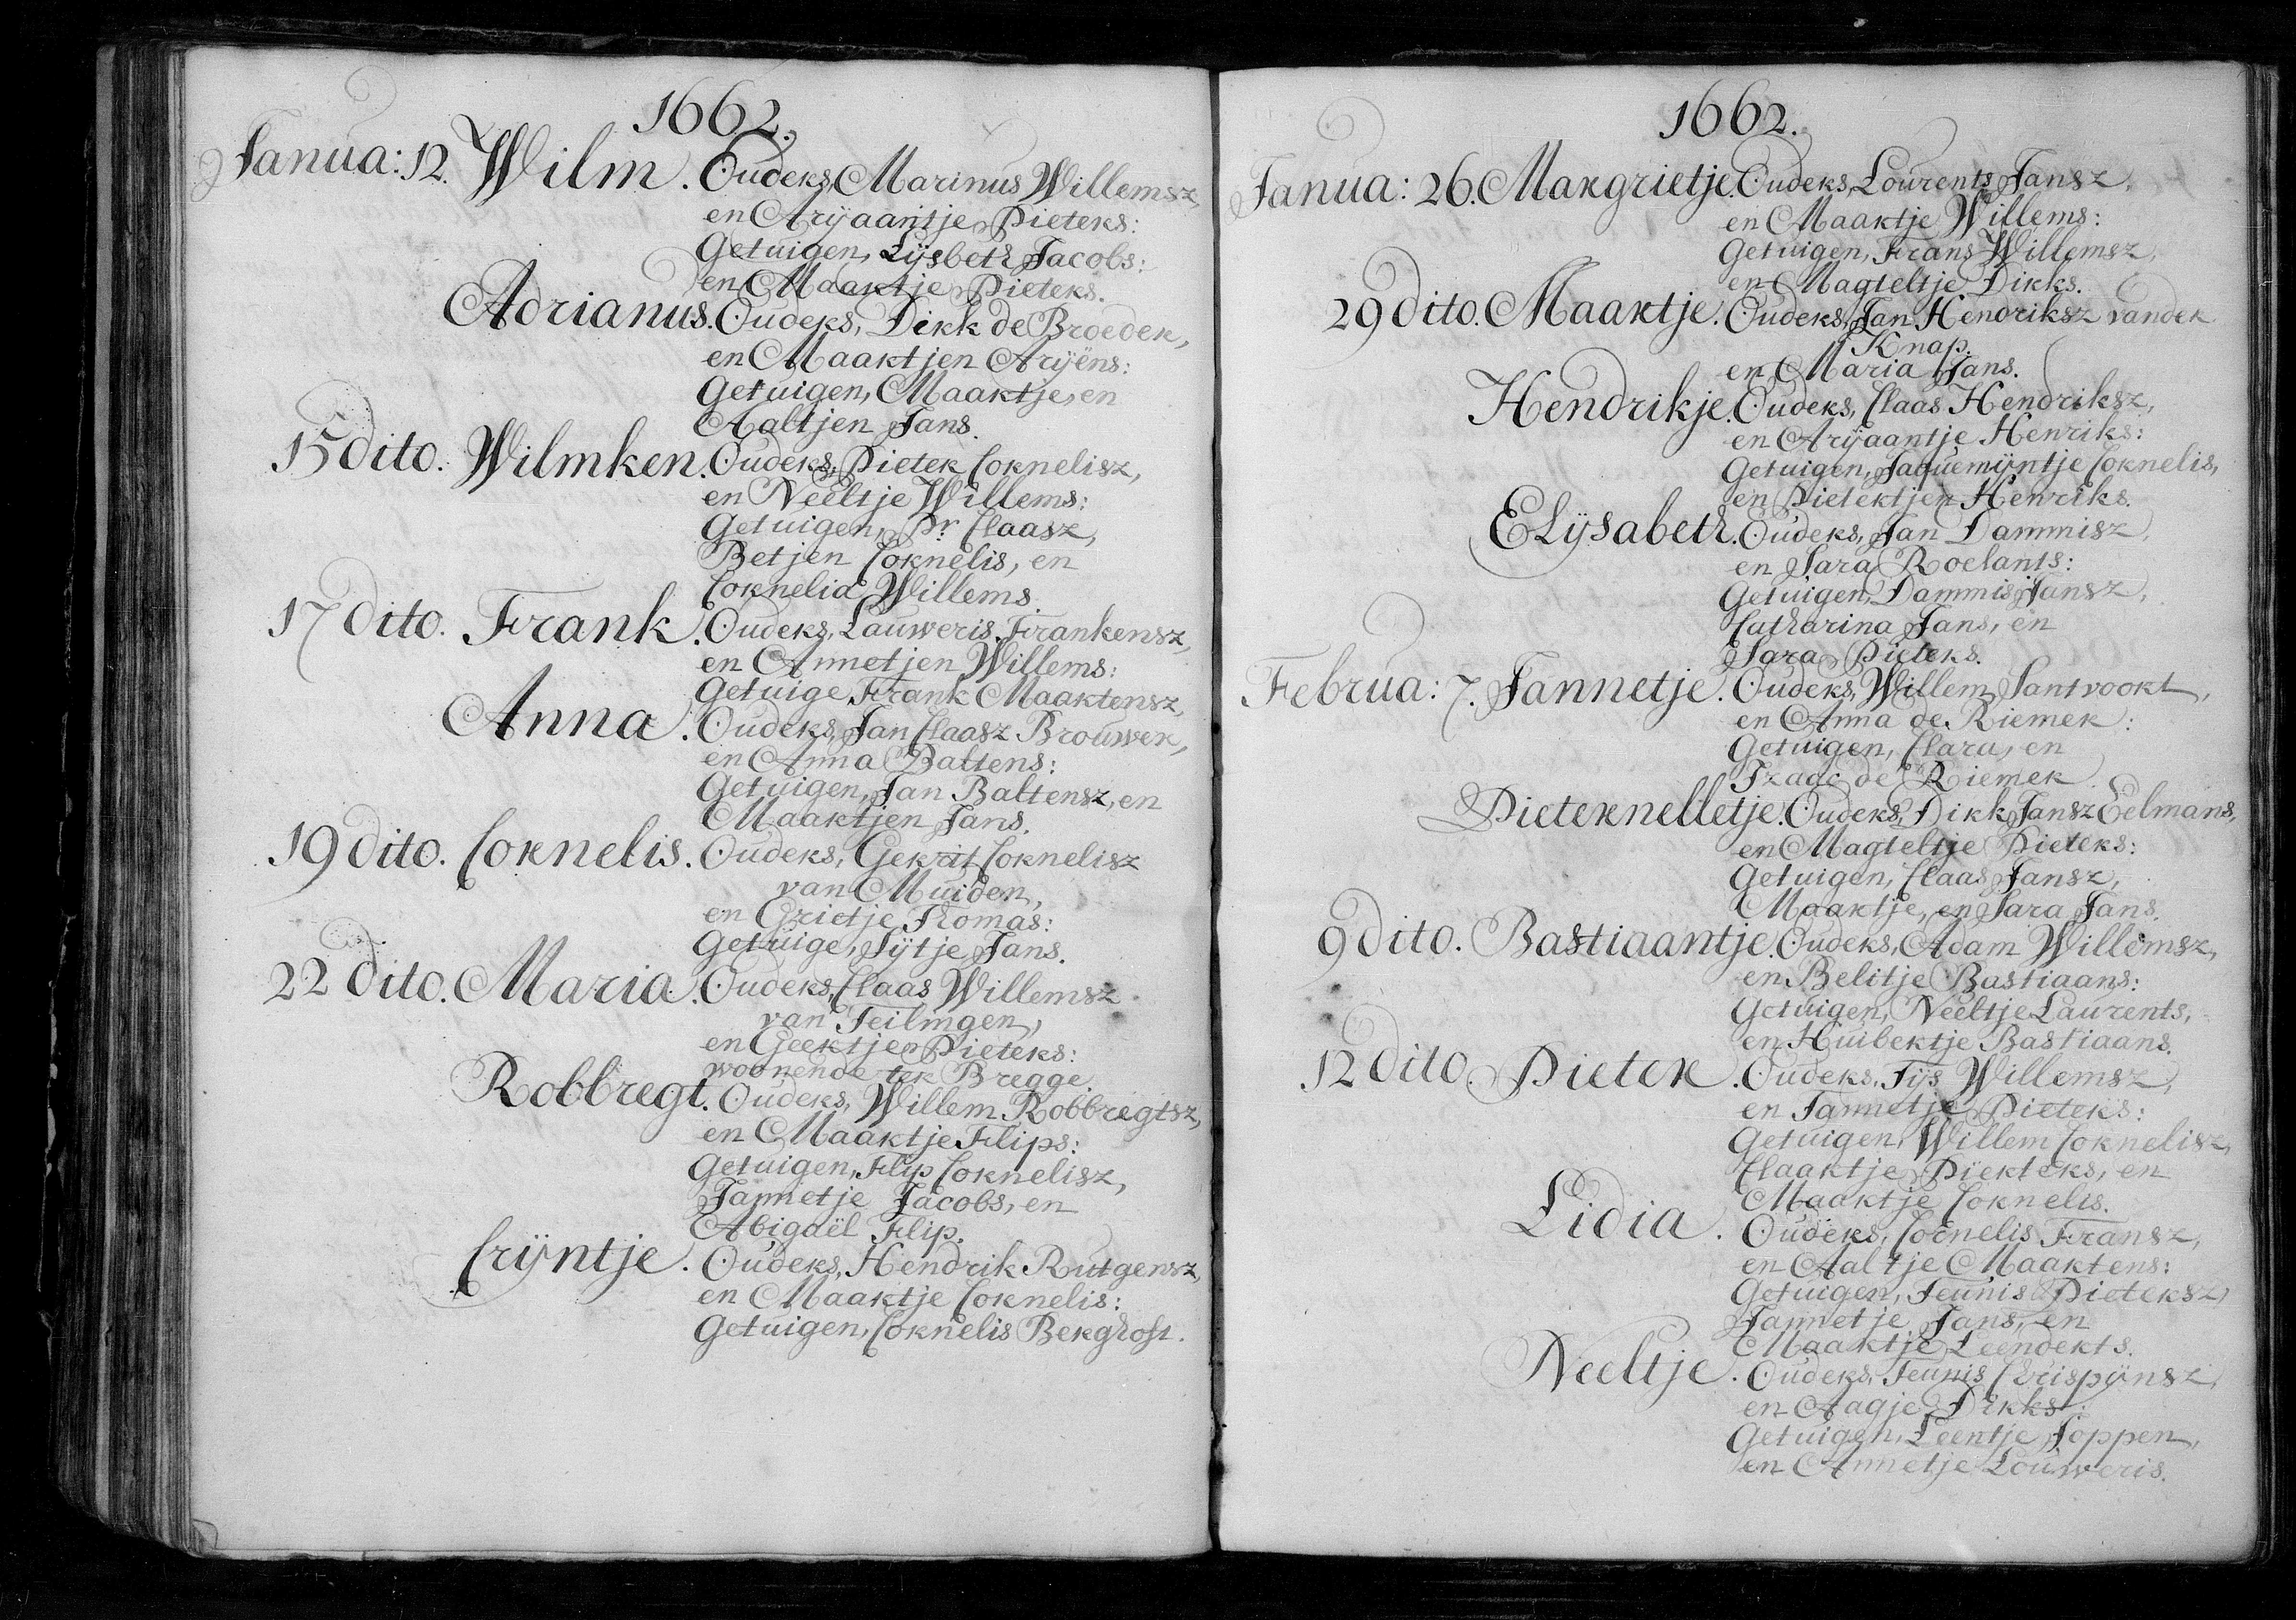 1662.
Janua: 12. Wilm. Ouders, Marinus Willemsz,
en Aryaantje Pieters:
Getuigen, Lysbeth Jacobs:
en Maartje Pieters.
Adrianus. Ouders, Dirk de Broeder,
en Maartjen Aryëns:
Getuigen, Maartje, en
Aaltjen Jans.
15 dito. Wilmken. Ouders, Pieter Cornelisz,
en Neeltje Willems:
Getuigen, Pr. Claasz,
Betjen Cornelis, en
Cornelia Willems.
17 dito. Frank. Ouders, Lauweris Frankensz,
en Annetjen Willems:
Getuige Frank Maartensz,
Anna. Ouders, Jan Claasz Brouwer,
en Anna Baltens:
Getuigen, Jan Baltensz, en
Maartjen Jans.
19 dito. Cornelis. Ouders, Gerrit Cornelisz
van Muiden,
en Grietje Thomas:
Getuige, Sytje Jans.
22 dito. Maria. Ouders, Claas Willemsz
van Teilingen,
en Geertjen Pieters:
woonende ter Bregge.
Robbregt. Ouders, Willem Robbregtsz,
en Maartje Flips:
Getuigen, Flip Cornelisz,
Jannetje Jacobs, en
Abigaël Flip.
Cryntje. Ouders, Hendrik Rutgensz,
en Maartje Cornelis:
Getuigen, Cornelis Berghost.
1662.
Janua: 26. Margrietje. Ouders, Lourents Jansz,
en Maartje Willems:
Getuigen, Frans Willemsz,
en Magteltje Dirks.
29 dito. Maartje. Ouders, Jan Hendriksz vander
Knap.
en Maria Jans.
Hendrikje. Ouders, Claas Hendriksz,
en Aryaantje Henriks:
Getuigen, Jaquemyntje Cornelis,
en Pietertjen Henriks.
Elysabeth. Ouders, Jan Dammisz,
en Sara Roelants:
Getuigen, Dammis Jansz,
Catharina Jans, en
Sara Pieters.
Februa: 7. Jannetje. Ouders, Willem Santvoort,
en Anna de Riemer:
Getuigen, Clara, en
Izaac de Riemer.
Pieternelletje. Ouders, Dirk Jansz Eelmans,
en Magteltje Pieters:
Getuigen, Claas Jansz,
Maartje, en Sara Jans.
9 dito. Bastiaantje. Ouders, Adam Willemsz,
en Belitje Bastiaans:
Getuigen, Neeltje Laurents,
en Huibertje Bastiaans.
12 dito. Pieter. Ouders, Tys Willemsz,
en Jannetje Pieters:
Getuigen, Willem Cornelisz,
Claartje Pierters, en
Maartje Cornelis.
Lidia. Ouders, Cornelis Fransz,
en Aaltje Maartens:
Getuigen, Teunis Pietersz,
Jannetje Jans, en
Maartje Leenderts.
Neeltje. Ouders, Teunis Chrispynsz,
en Aagje Dirks:
Getuigen, Leentje Joppen,
en Annetje Louweris.